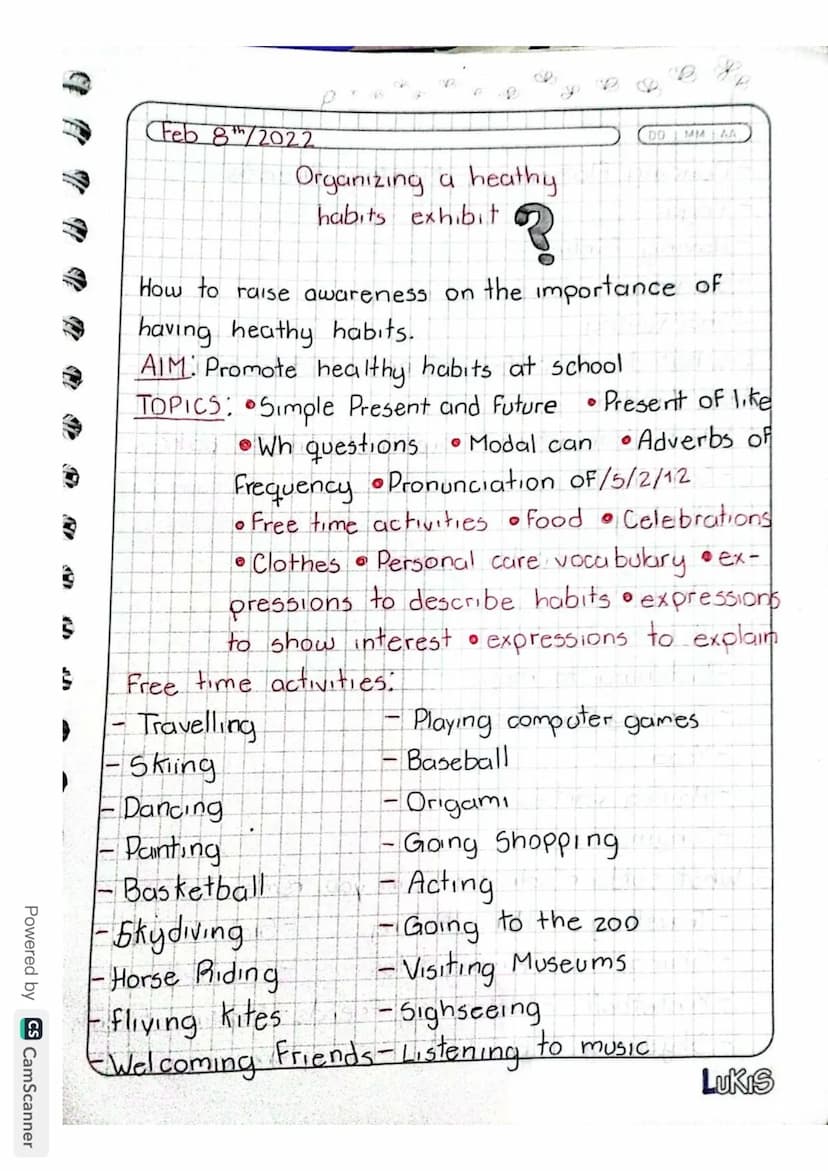 Feb 8th/2022
DD MM AA
Organizing a heathy
habits exhibit ?
How to raise awareness on the importance of
having heathy habits.
AIM: Promote healthy habits at school
TOPICS: • Simple Present and Future • Present of like
• Wh questions • Modal can • Adverbs of
frequency • Pronunciation of /s/z/iz
• Free time activities • Food • Celebrations
• Clothes • Personal care vocabulary • ex-
pressions to describe habits • expressions
to show interest • expressions to explain
Free time activities:
- Travelling
- Skiing
- Dancing
- Painting
- Basketball
- Skydiving
- Horse Riding
- fliying kites
- Welcoming Friends
- Playing computer games
- Baseball
- Origami
- Going Shopping
- Acting
- Going to the zoo
- Visiting Museums
- Sighseeing
- Listening to music
LUKIS
Powered by CS CamScanner